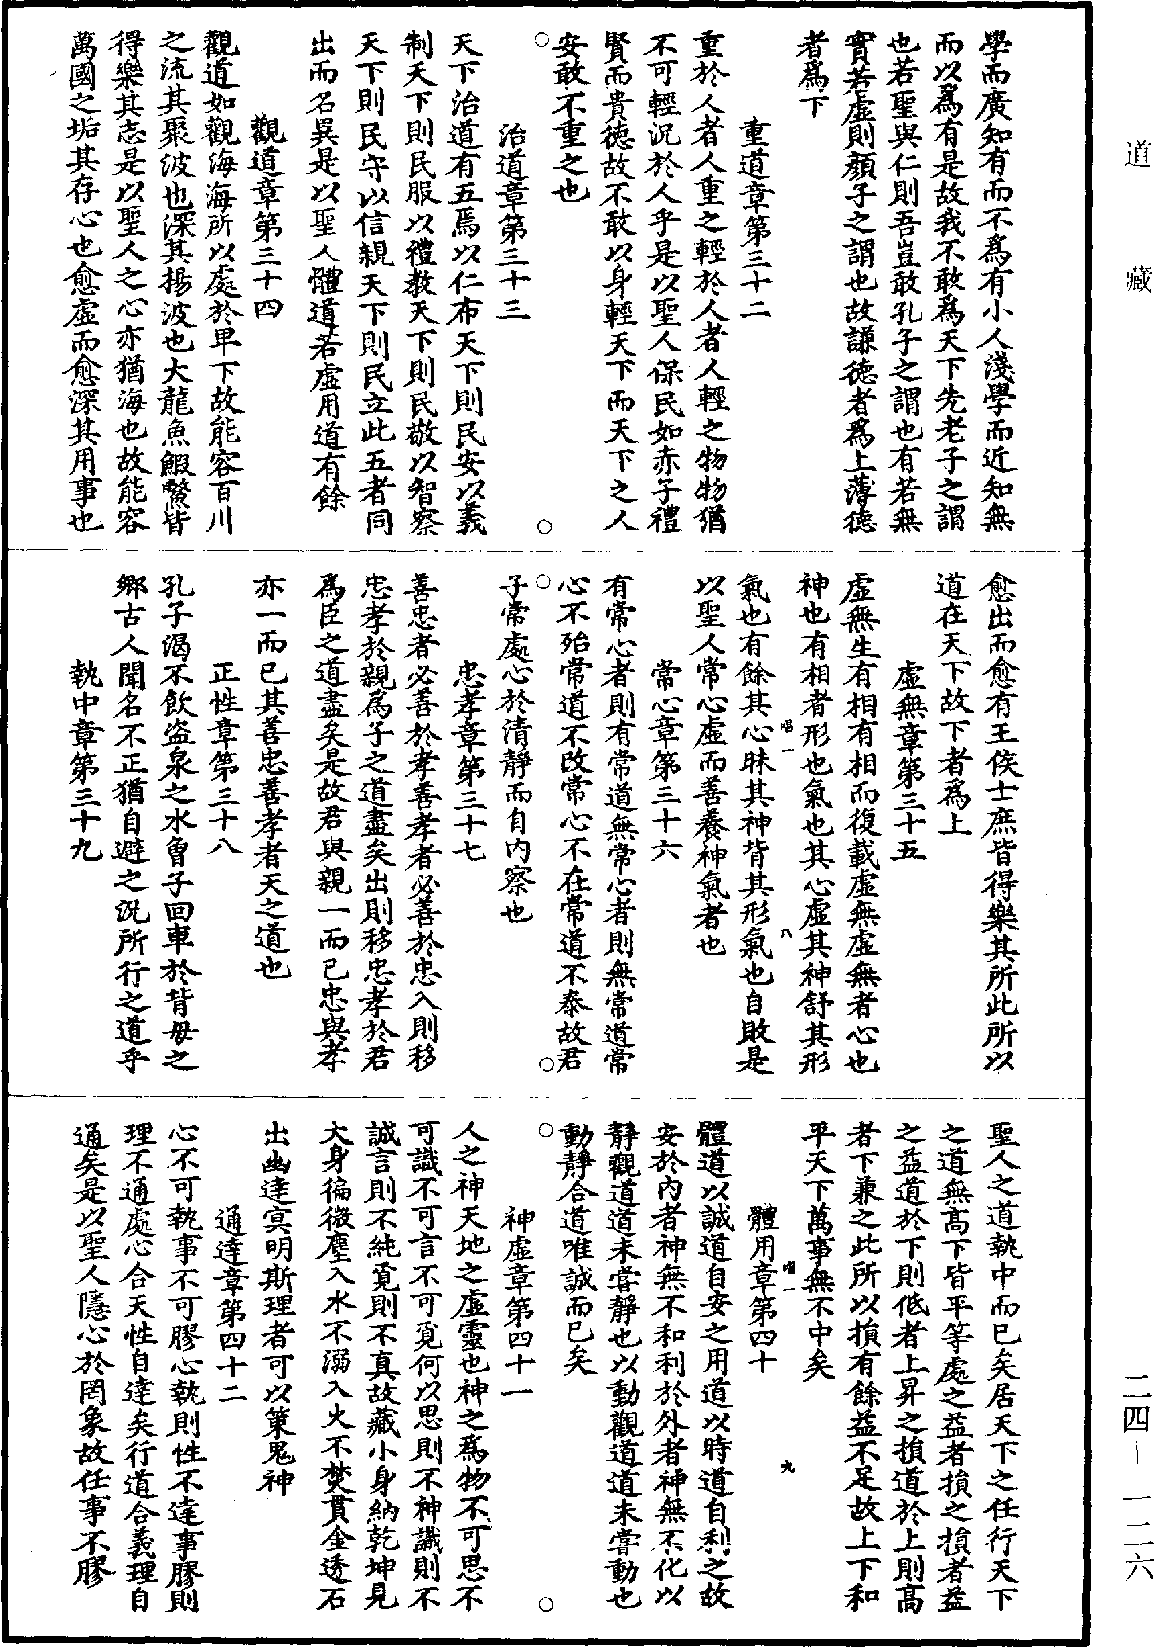 道藏
學而廣知有而不爲有小人淺學而近知無
而以爲有是故我不敢爲天下先老子之謂
也若聖與仁則吾豈敢孔子之謂也有若無
實若虛則顏子之謂也故謙德者爲上薄德
者爲下
重道章第三十二
重於人者人重之輕於人者人輕之物物猶
不可輕況於人乎是以聖人保民如赤子禮
賢而貴德故不敢以身輕天下而天下之人
安敢不重之也
治道章第三十三
天下治道有五焉以仁布天下則民安以義
制天下則民服以禮教天下則民敬以智察
天下則民守以信親天下則民立此五者同
出而名異是以聖人體道若虛用道有餘
觀道章第三十四
觀道如觀海海所以處於卑下故能容百川
之流其聚波也深其揚波也大龍魚鰕鱉皆
得樂其志是以聖人之心亦猶海也故能容
萬國之垢其存心也愈虛而愈深其用事也
愈出而愈有王侯士庶皆得樂其所此所以
道在天下故下者爲上
虛無章第三十五
虛無生有相有相而復載虛無虛無者心也
神也有相者形也氣也其心虛其神舒其形
氣也有餘其心昧其神皆其形氣也自敗是
以聖人常心虛而善養神氣者也
常心章第三十六
有常心者則有常道無常心者則無常道常
心不殆常道不改常心不在常道不泰故君
子常處心於清靜而自內察也
忠孝章第三十七
善忠者必善於孝善孝者必善於忠入則移
忠孝於親爲子之道盡矣出則移忠孝於君
爲臣之道盡矣是故君與親一而已忠與孝
亦一而已其善忠善孝者天之道也
正性章第三十八
孔子渴不飲盜泉之水曾子回車於背母之
鄉古人聞名不正猶自避之況所行之道乎
執中章第三十九
聖人之道執中而已矣居天下之任行天下
之道無高下皆平等處之益者損之損者益
之益道於下則低者上昇之損道於上則高
者下兼之此所以損有餘益不足故上下和
平天下萬事無不中矣
體用章第四十
體道以誠道自安之用道以時道自利之故
安於內者神無不和利於外者神無不化以
靜觀道道未嘗靜也以動觀道道未嘗動也
動靜合道唯誠而已矣
神虛章第四十一
人之神天地之虛靈也神之爲物不可思不
可識不可言不可覓何以思則不神識則不
誠言則不純覓則不真故藏小身納乾坤見
大身徧微塵入水不溺入火不焚貫金透石
出幽達冥明斯理者可以策鬼神
通達章第四十二
心不可執事不可膠心執則性不達事膠則
理不通處心合天性自達矣行道合義理自
通矣是以聖人隱心於罔象故任事不膠
二四—一二六